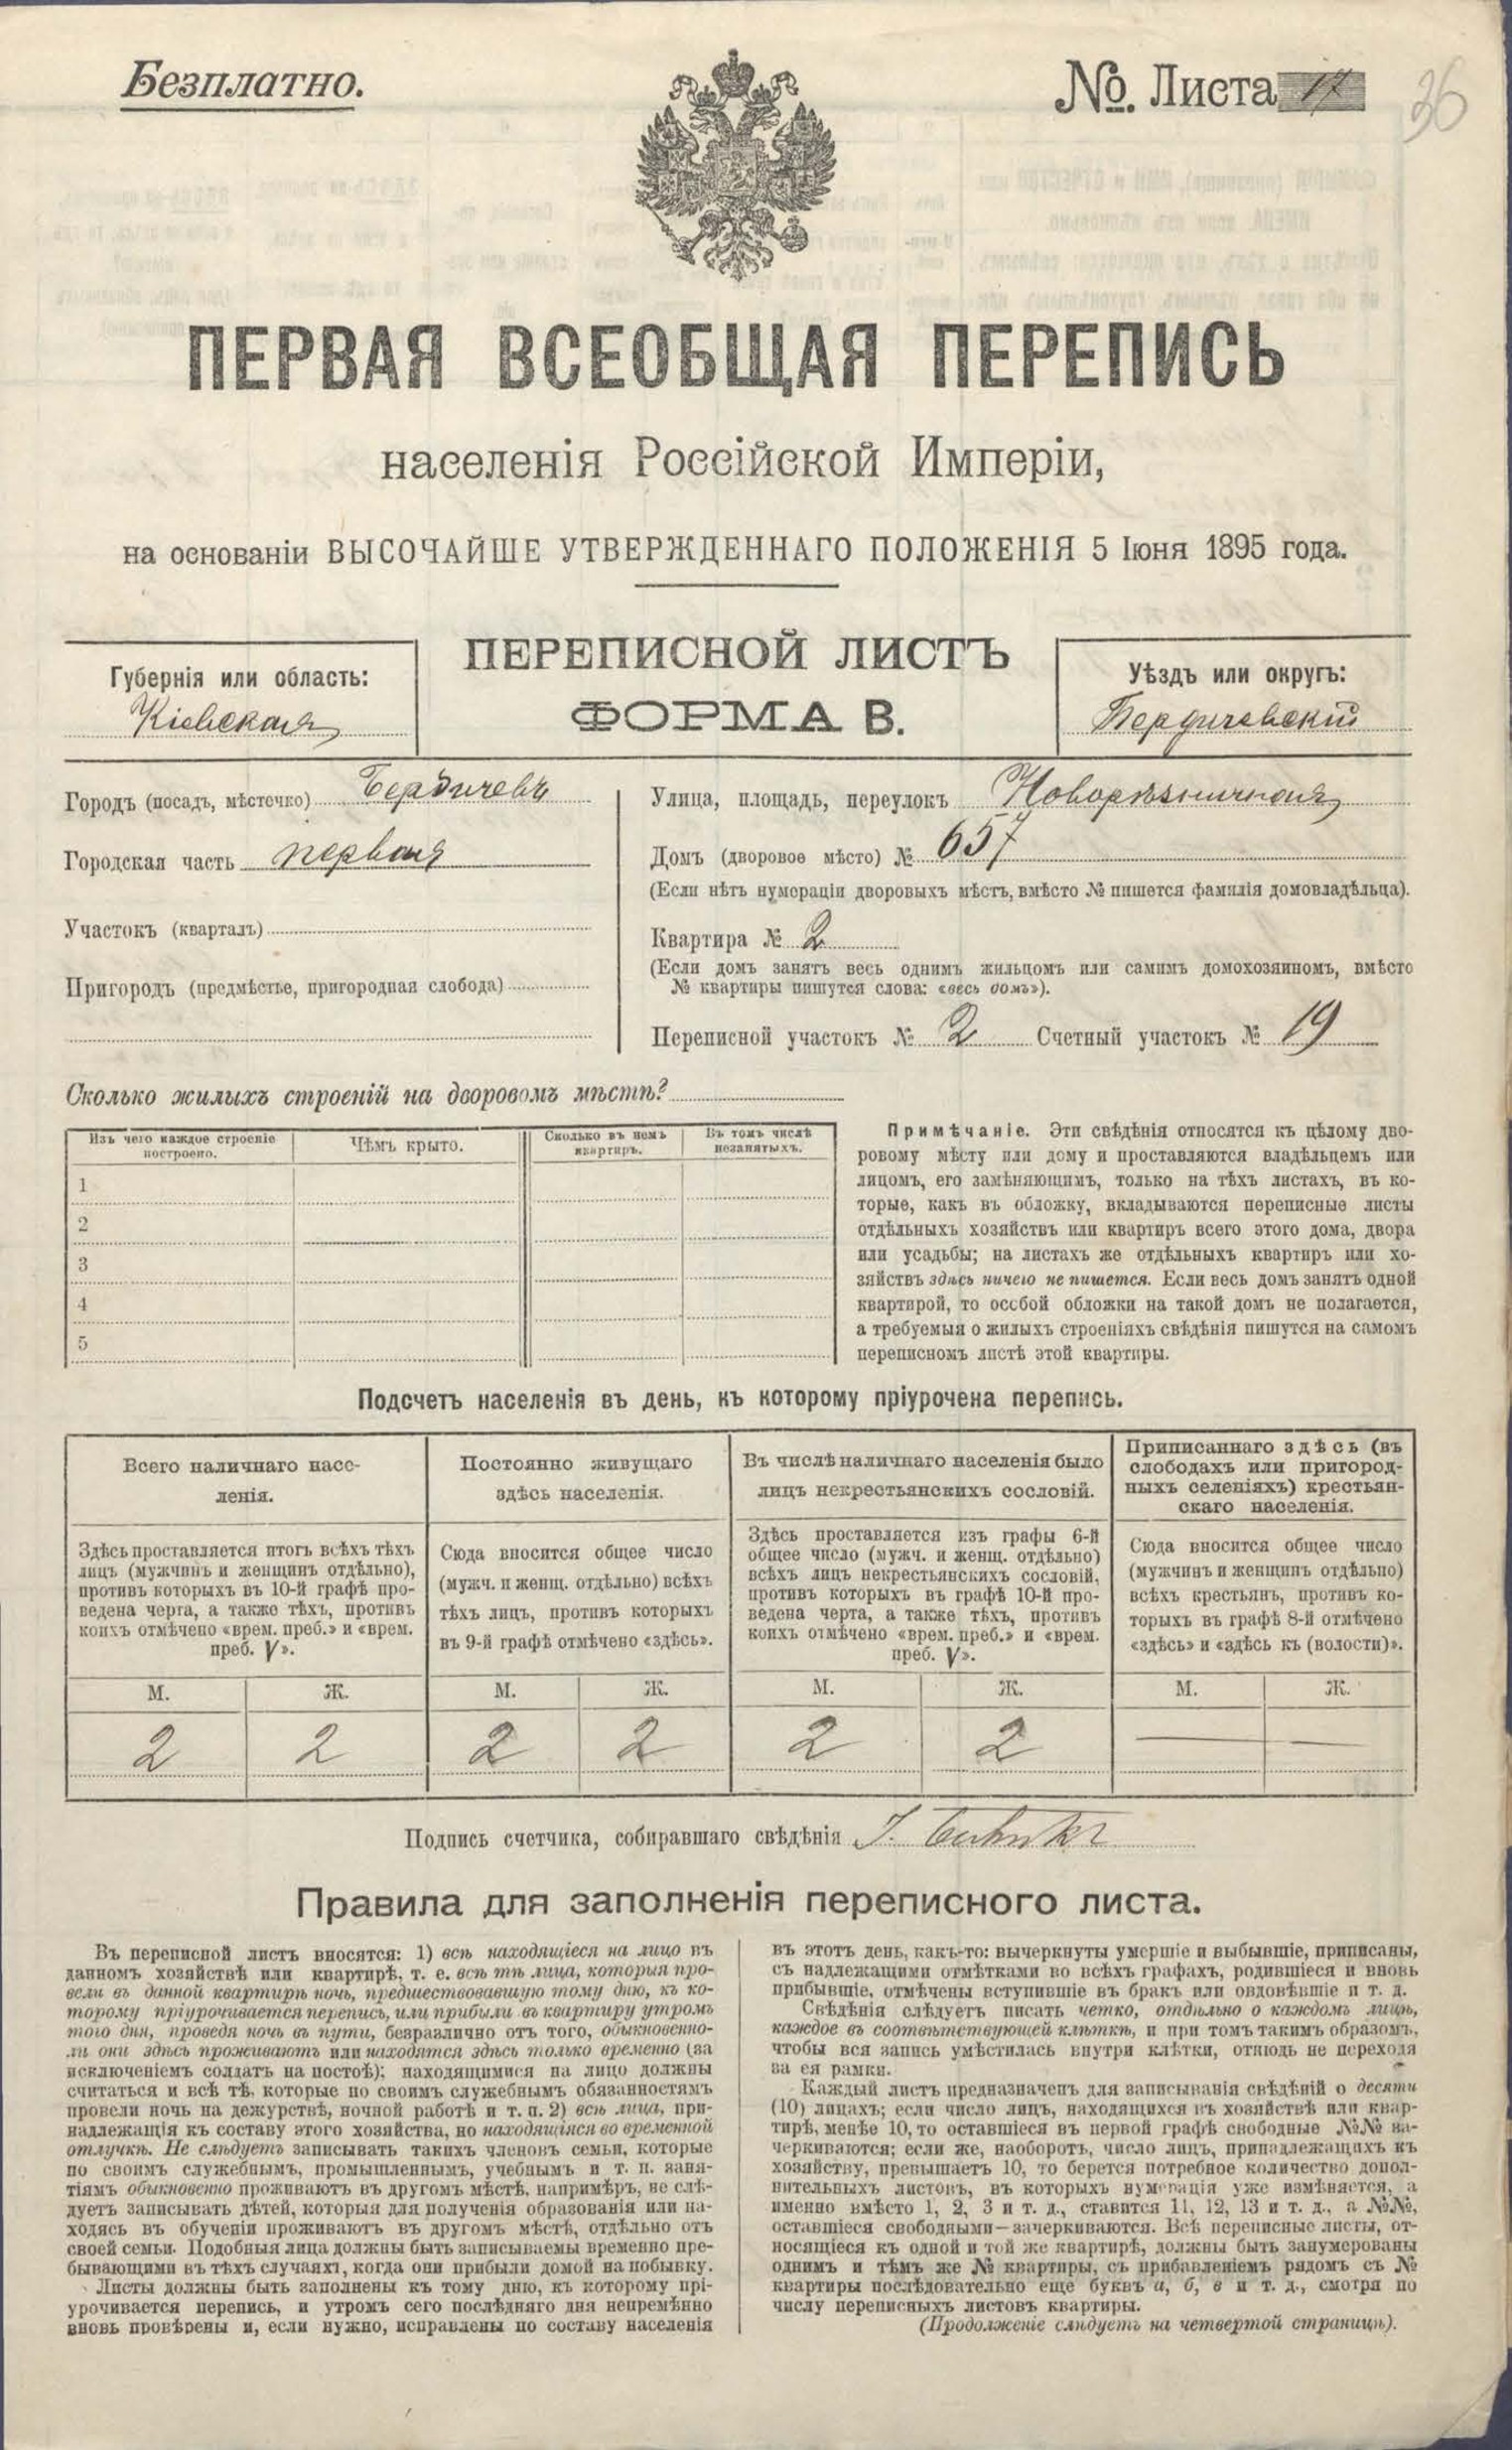 Безплатно.
№. Листа 17
36
ПЕРВАЯ ВСЕОБЩАЯ ПЕРЕПИСЬ
населенія Россійской Имперіи,
на основаніи ВЫСОЧАЙШЕ УТВЕРЖДЕННАГО ПОЛОЖЕНІЯ 5 Іюня 1895 года.
ПЕРЕПИСНОЙ ЛИСТЪ
ФОРМА В.
Губернія или область:
Кіевская
Уѣздъ или округъ:
Бердичевскій
Городъ (посадъ, мѣстечко) Бердичевъ
Городская часть первая
Участокъ (кварталъ)
Пригородъ (предмѣстье, пригородная слобода)
Улица, площадь, переулокъ Новорѣзничная
Домъ (дворовое мѣсто) № 657
(Если нѣтъ нумераціи дворовыхъ мѣстъ, вмѣсто № пишется фамилія домовладѣльца).
Квартира № 2
(Если домъ занятъ весь однимъ жильцомъ или самимъ домохозяиномъ, вмѣсто
№ квартиры пишутся слова: «весь домъ»).
Переписной участокъ № 2 Счетный участокъ № 19
Сколько жилыхъ строеній на дворовомъ мѣстѣ?
Изъ чего каждое строеніе
построено.
Чѣмъ крыто.
Сколько въ немъ
квартиръ.
Въ томъ числѣ
незанятыхъ.
1
2
3
4
5
Примѣчаніе. Эти свѣдѣнія относятся къ цѣлому дво-
ровому мѣсту или дому и проставляются владѣльцемъ или
лицомъ, его замѣняющимъ, только на тѣхъ листахъ, въ ко-
торые, какъ въ обложку, вкладываются переписные листы
отдѣльныхъ хозяйствъ или квартиръ всего этого дома, двора
или усадьбы; на листахъ же отдѣльныхъ квартиръ или хо-
зяйствъ здѣсь ничего не пишется. Если весь домъ занятъ одной
квартирой, то особой обложки на такой домъ не полагается,
а требуемыя о жилыхъ строеніяхъ свѣдѣнія пишутся на самомъ
переписномъ листѣ этой квартиры.
Подсчетъ населенія въ день, къ которому пріурочена перепись.
Всего наличнаго насе-
ленія.
Здѣсь проставляется итогъ всѣхъ тѣхъ
лицъ (мужчинъ и женщинъ отдѣльно),
противъ которыхъ въ 10-й графѣ про-
ведена черта, а также тѣхъ, противъ
коихъ отмѣчено «врем. преб.» и «врем.
преб. V».
Постоянно живущаго
здѣсь населенія.
Сюда вносится общее число
(мужч. и женщ. отдѣльно) всѣхъ
тѣхъ лицъ, противъ которыхъ
въ 9-й графѣ отмѣчено «здѣсь».
Въ числѣ наличнаго населенія было
лицъ некрестьянскихъ сословій.
Здѣсь проставляется изъ графы 6-й
общее число (мужч. и женщ. отдѣльно)
всѣхъ лицъ некрестьянскихъ сословій,
противъ которыхъ въ графѣ 10-й про-
ведена черта, а также тѣхъ, противъ
коихъ отмѣчено «врем. преб.» и «врем.
преб. V».
Приписаннаго здѣсь (въ
слободахъ или пригород-
ныхъ селеніяхъ) крестьян-
скаго населенія.
Сюда вносится общее число
(мужчинъ и женщинъ отдѣльно)
всѣхъ крестьянъ, противъ ко-
торыхъ въ графѣ 8-й отмѣчено
«здѣсь» и «здѣсь къ (волости)».
М. Ж. М. Ж. М. Ж. М. Ж.
2 2 2 2 2 2 — —
Подпись счетчика, собиравшаго свѣдѣнія
Правила для заполненія переписного листа.
Въ переписной листъ вносятся: 1) всѣ находящіеся на лицо въ
данномъ хозяйствѣ или квартирѣ, т. е. всѣ тѣ лица, которыя про-
вели въ данной квартирѣ ночь, предшествовавшую тому дню, къ ко-
торому пріурочивается перепись, или прибыли въ квартиру утромъ
того дня, проведя ночь въ пути, безразлично отъ того, обыкновенно-
ли они здѣсь проживаютъ или находятся здѣсь только временно (за
исключеніемъ солдатъ на постоѣ); находящимися на лицо должны
считаться и всѣ тѣ, которые по своимъ служебнымъ обязанностямъ
провели ночь на дежурствѣ, ночной работѣ и т. п. 2) всѣ лица, при-
надлежащія къ составу этого хозяйства, но находящіяся во временной
отлучкѣ. Не слѣдуетъ записывать такихъ членовъ семьи, которые
по своимъ служебнымъ, промышленнымъ, учебнымъ и т. п. заня-
тіямъ обыкновенно проживаютъ въ другомъ мѣстѣ, напримѣръ, не слѣ-
дуетъ записывать дѣтей, которыя для полученія образованія или на-
ходясь въ обученіи проживаютъ въ другомъ мѣстѣ, отдѣльно отъ
своей семьи. Подобныя лица должны быть записываемы временно пре-
бывающими въ тѣхъ случаяхъ, когда они прибыли домой на побывку.
Листы должны быть заполнены къ тому дню, къ которому прі-
урочивается перепись, и утромъ сего послѣдняго дня непремѣнно
вновь провѣрены и, если нужно, исправлены по составу населенія
въ этотъ день, какъ-то: вычеркнуты умершіе и выбывшіе, приписаны,
съ надлежащими отмѣтками во всѣхъ графахъ, родившіеся и вновь
прибывшіе, отмѣчены вступившіе въ бракъ или овдовѣвшіе и т. д.
Свѣдѣнія слѣдуетъ писать четко, отдѣльно о каждомъ лицѣ,
каждое въ соотвѣтствующей клѣткѣ, и при томъ такимъ образомъ,
чтобы вся запись умѣстилась внутри клѣтки, отнюдь не переходя
за ея рамки.
Каждый листъ предназначенъ для записыванія свѣдѣній о десяти
(10) лицахъ; если число лицъ, находящихся въ хозяйствѣ или квар-
тирѣ, менѣе 10, то оставшіеся въ первой графѣ свободные №№ за-
черкиваются; если же, наоборотъ, число лицъ, принадлежащихъ къ
хозяйству, превышаетъ 10, то берется потребное количество допол-
нительныхъ листовъ, въ которыхъ нумерація уже измѣняется, а
именно вмѣсто 1, 2, 3 и т. д., ставится 11, 12, 13 и т. д., а №№,
оставшіеся свободными—зачеркиваются. Всѣ переписные листы, от-
носящіеся къ одной и той же квартирѣ, должны быть занумерованы
однимъ и тѣмъ же № квартиры, съ прибавленіемъ рядомъ съ №
квартиры послѣдовательно еще буквъ а, б, в и т. д., смотря по
числу переписныхъ листовъ квартиры.
(Продолженіе слѣдуетъ на четвертой страницѣ).